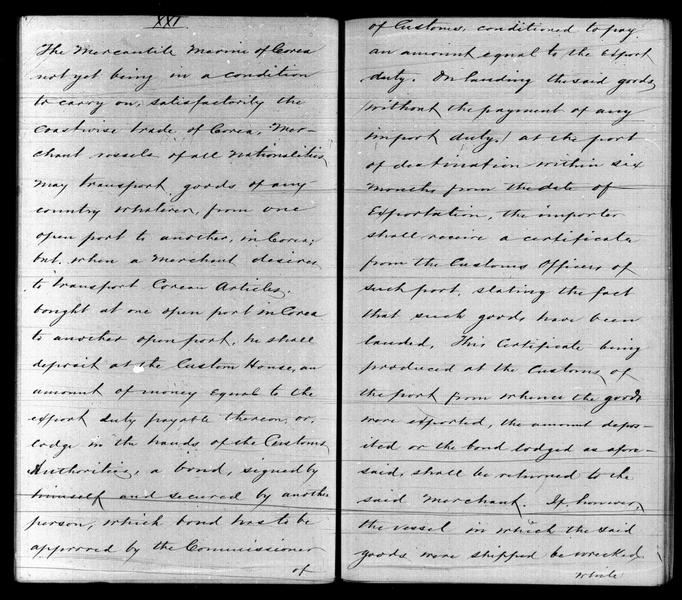 XXI
The Mercantile Marine of Corea
not yet being in a condition
to carry on, satisfactorily the
coastwise trade of Corea, Mer-
chant vessels of all nationalities
may transport goods of any
country whatever, from one
open port to another, in Corea;
but, when a Merchant desires
to transport Corean Articles,
bought at one open port in Corea
to another open port, he shall
deposit at the Custom House, an
amount of money equal to the
export duty payable thereon, or,
lodge in the hands of the Customs
Authorities, a bond, signed by
himself and secured by another
person, which bond has to be
approved by the Commissioner
of
of Customs, conditioned to pay
an amount equal to the Export
duty. On landing the said goods,
(without the payment of any
import duty,) at the port
of destination within six
months from the date of
Exportation, the importer
shall receive a certificate
from the Customs Officers of
such port, stating the fact
that such goods have been
landed. This Certificate being
produced at the Customs of
the port from whence the goods
were exported, the amount depos-
ited or the bond lodged as afore-
said, shall be returned to the
said Merchant. If, however,
the vessel in which the said
goods were shipped be wrecked
while